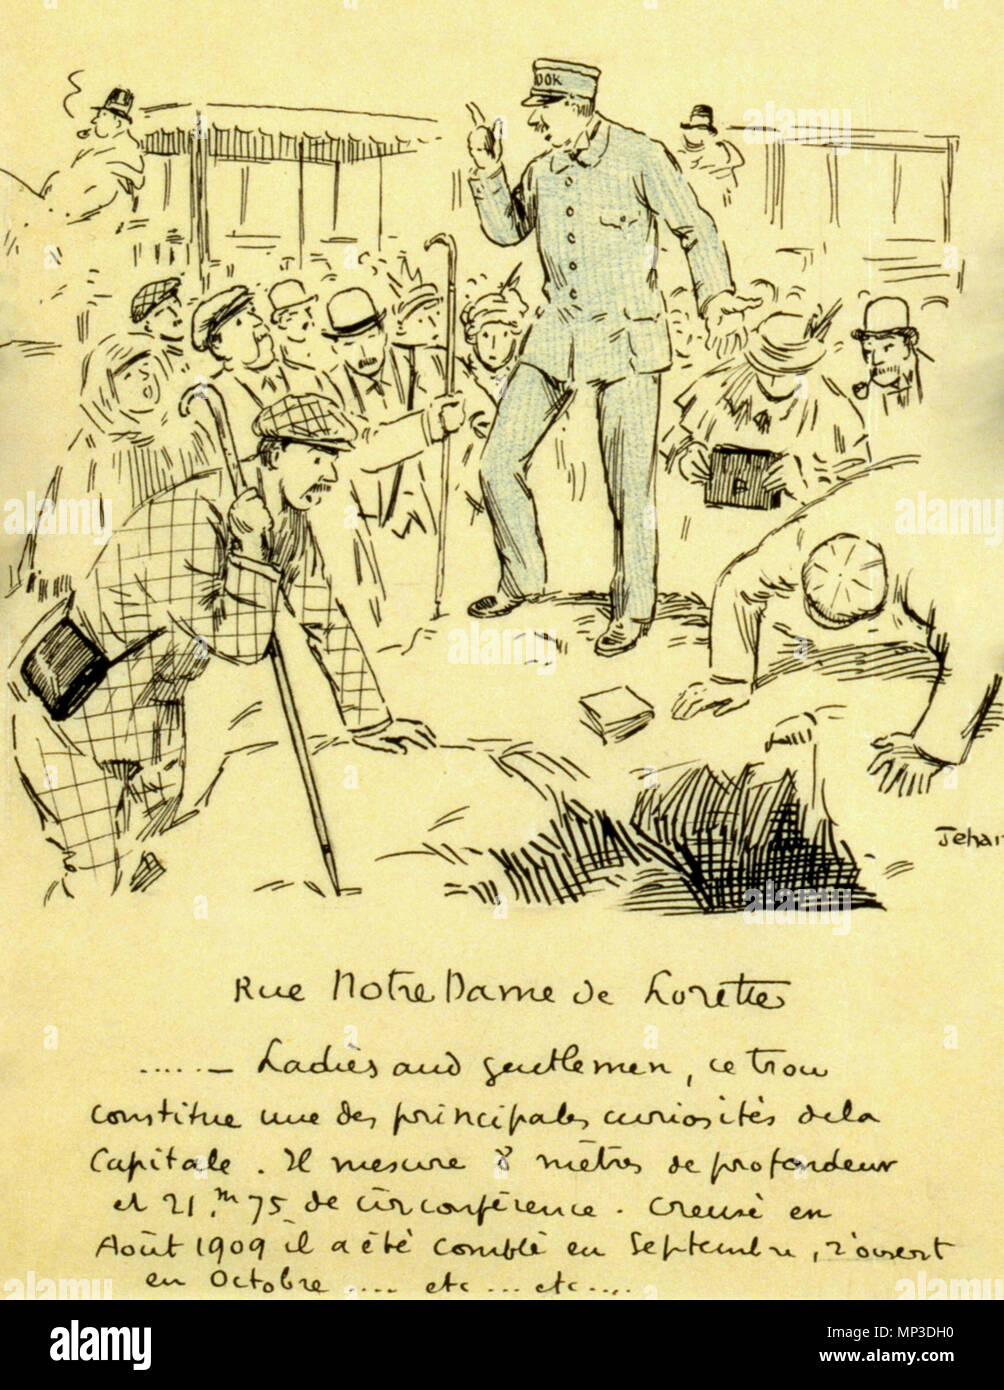 OOK
Jehan
Rue Notre Dame de Lorette
..... — Ladies and gentlemen, ce trou
constitue une des principales curiosités de la
Capitale. Il mesure 8 mètres de profondeur
et 21.m 75 de circonférence. Creusé en
Août 1909 il a été comblé en Septembre, r'ouvert
en Octobre .... etc ... etc....
alamy
Image ID: MP3DH0
www.alamy.com